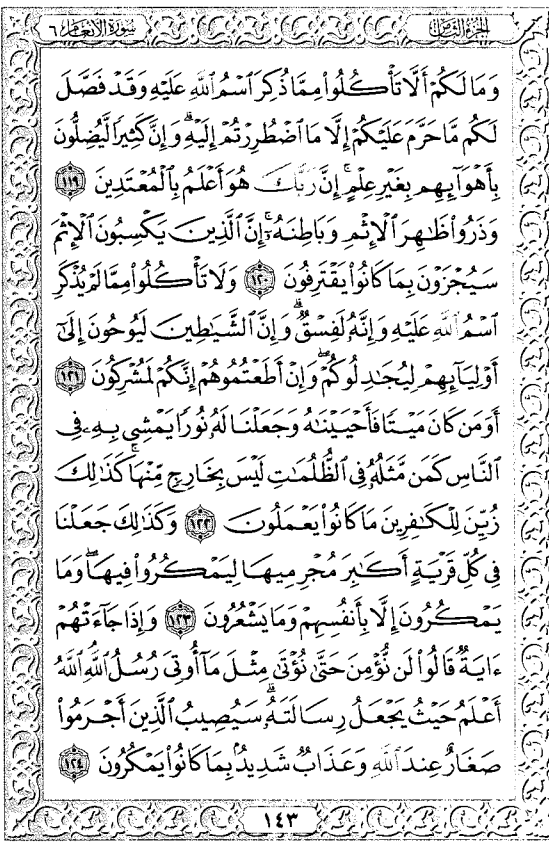 الجزء الثامن سورة الأنعام ٦
وَمَا لَكُمْ أَلَّا تَأْكُلُوا۟ مِمَّا ذُكِرَ ٱسْمُ ٱللَّهِ عَلَيْهِ وَقَدْ فَصَّلَ
لَكُم مَّا حَرَّمَ عَلَيْكُمْ إِلَّا مَا ٱضْطُرِرْتُمْ إِلَيْهِ ۗ وَإِنَّ كَثِيرًا لَّيُضِلُّونَ
بِأَهْوَآئِهِم بِغَيْرِ عِلْمٍ ۚ إِنَّ رَبَّكَ هُوَ أَعْلَمُ بِٱلْمُعْتَدِينَ ١١٩
وَذَرُوا۟ ظَـٰهِرَ ٱلْإِثْمِ وَبَاطِنَهُۥٓ ۚ إِنَّ ٱلَّذِينَ يَكْسِبُونَ ٱلْإِثْمَ
سَيُجْزَوْنَ بِمَا كَانُوا۟ يَقْتَرِفُونَ ١٢٠ وَلَا تَأْكُلُوا۟ مِمَّا لَمْ يُذْكَرِ
ٱسْمُ ٱللَّهِ عَلَيْهِ وَإِنَّهُۥ لَفِسْقٌ ۗ وَإِنَّ ٱلشَّيَـٰطِينَ لَيُوحُونَ إِلَىٰٓ
أَوْلِيَآئِهِمْ لِيُجَـٰدِلُوكُمْ ۖ وَإِنْ أَطَعْتُمُوهُمْ إِنَّكُمْ لَمُشْرِكُونَ ١٢١
أَوَمَن كَانَ مَيْتًا فَأَحْيَيْنَـٰهُ وَجَعَلْنَا لَهُۥ نُورًا يَمْشِى بِهِۦ فِى
ٱلنَّاسِ كَمَن مَّثَلُهُۥ فِى ٱلظُّلُمَـٰتِ لَيْسَ بِخَارِجٍ مِّنْهَا ۚ كَذَٰلِكَ
زُيِّنَ لِلْكَـٰفِرِينَ مَا كَانُوا۟ يَعْمَلُونَ ١٢٢ وَكَذَٰلِكَ جَعَلْنَا
فِى كُلِّ قَرْيَةٍ أَكَـٰبِرَ مُجْرِمِيهَا لِيَمْكُرُوا۟ فِيهَا ۖ وَمَا
يَمْكُرُونَ إِلَّا بِأَنفُسِهِمْ وَمَا يَشْعُرُونَ ١٢٣ وَإِذَا جَآءَتْهُمْ
ءَايَةٌ قَالُوا۟ لَن نُّؤْمِنَ حَتَّىٰ نُؤْتَىٰ مِثْلَ مَآ أُوتِىَ رُسُلُ ٱللَّهِ ۘ ٱللَّهُ
أَعْلَمُ حَيْثُ يَجْعَلُ رِسَالَتَهُۥ ۗ سَيُصِيبُ ٱلَّذِينَ أَجْرَمُوا۟
صَغَارٌ عِندَ ٱللَّهِ وَعَذَابٌ شَدِيدٌۢ بِمَا كَانُوا۟ يَمْكُرُونَ ١٢٤
١٤٣